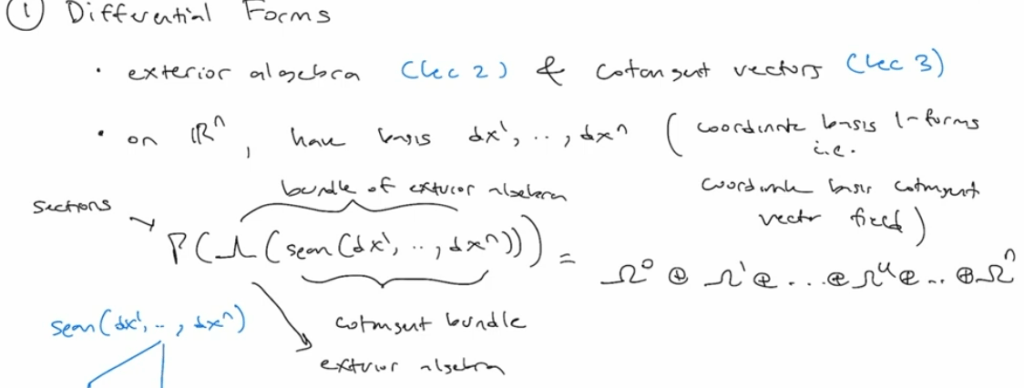 ① Differential Forms
· exterior algebra (lec 2) & cotangent vectors (lec 3)
· on ℝⁿ, have basis dx¹, .., dxⁿ (coordinate basis 1-forms
i.e.
coordinate basis cotangent
vector field)
bundle of exterior algebra
sections
Γ(Λ(span(dx¹, .., dxⁿ))) = Ω⁰ ⊕ Ω¹ ⊕ ... ⊕ Ωᵏ ⊕ .. ⊕ Ωⁿ
span(dx¹, .., dxⁿ)
cotangent bundle
exterior algebra